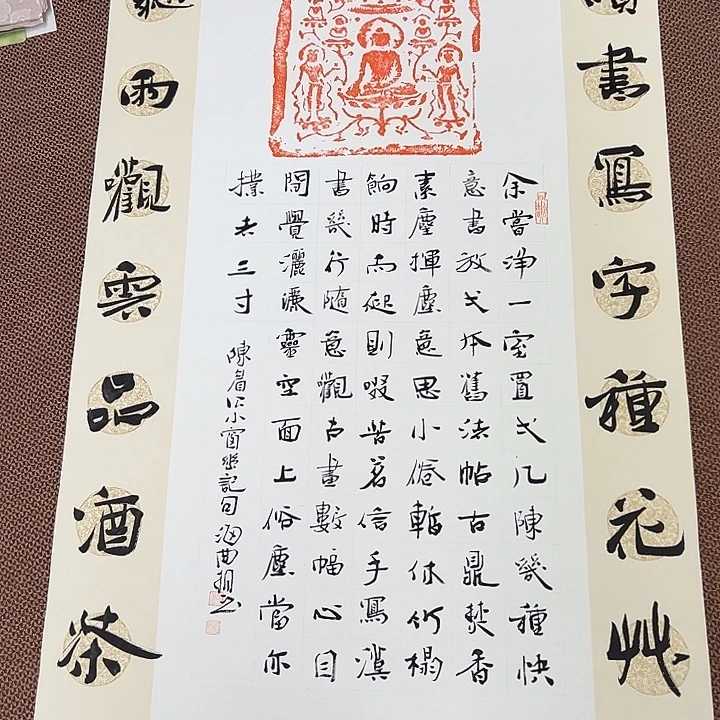 書寫字種花艸
余嘗淨一室置弌几陳幾種快
意書放弌本舊法帖古鼎焚香
素麈揮塵意思小倦暫休竹榻
餉時而起則啜苦茗信手寫漢
書幾行隨意觀古畫數幅心目
間覺灑靈空面上俗塵當亦
撲去三寸
陳眉公小窗幽記句
雨觀雲品酒茶